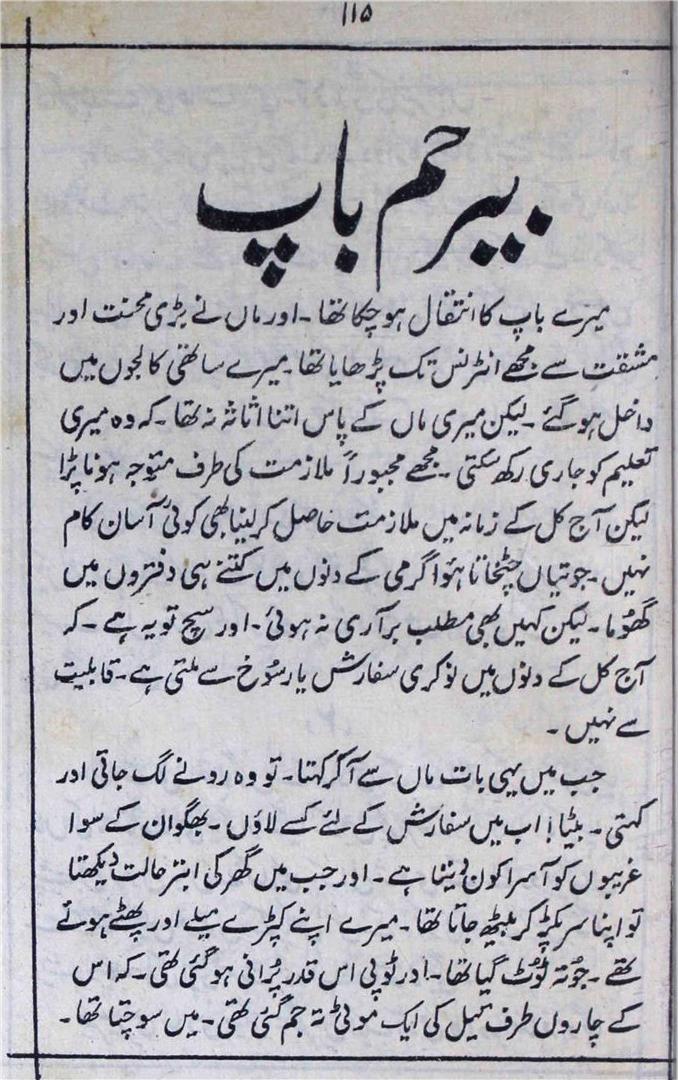 ۱۱۵
بیرحم باپ
میرے باپ کا انتقال ہو چکا تھا ۔ اور ماں نے بڑی محنت اور
مشقت سے مجھے انٹرنس تک پڑھایا تھا میرے ساتھی کالجوں میں
داخل ہو گئے ۔ لیکن میری ماں کے پاس اتنا اثاثہ نہ تھا ۔ کہ وہ میری
تعلیم کو جاری رکھ سکتی ۔ مجھے مجبوراً ملازمت کی طرف متوجہ ہونا پڑا
لیکن آج کل کے زمانہ میں ملازمت حاصل کر لینا بھی کوئی آسان کام
نہیں ۔ جوتیاں چٹخاتا ہؤا گرمی کے دنوں میں کتنے ہی دفتروں میں
گھُوما ۔ لیکن کہیں بھی مطلب برآری نہ ہوئی ۔ اور سچ تو یہ ہے ۔ کہ
آج کل کے دنوں میں نوکری سفارش یا رسُوخ سے ملتی ہے ۔ قابلیت
سے نہیں ۔
جب میں یہی بات ماں سے آ کر کہتا ۔ تو وہ رونے لگ جاتی اور
کہتی ۔ بیٹا! اب میں سفارش کے لئے کسے لاؤں ۔ بھگوان کے سوا
غریبوں کو آسرا کون دیتا ہے ۔ اور جب میں گھر کی ابتر حالت دیکھتا
تو اپنا سر پکڑ کر بیٹھ جاتا تھا ۔ میرے اپنے کپڑے میلے اور پھٹے ہوئے
تھے ۔ جُوتہ ٹوُٹ گیا تھا ۔ اور ٹوپی اس قدر پُرانی ہو گئی تھی ۔ کہ اس
کے چاروں طرف تیل کی ایک موٹی تہ جم گئی تھی ۔ میں سوچتا تھا ۔